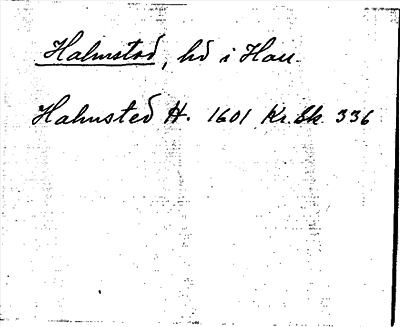 Halmstad, hd i Hall.
Halmsted H. 1601 Kr.Sk. 336